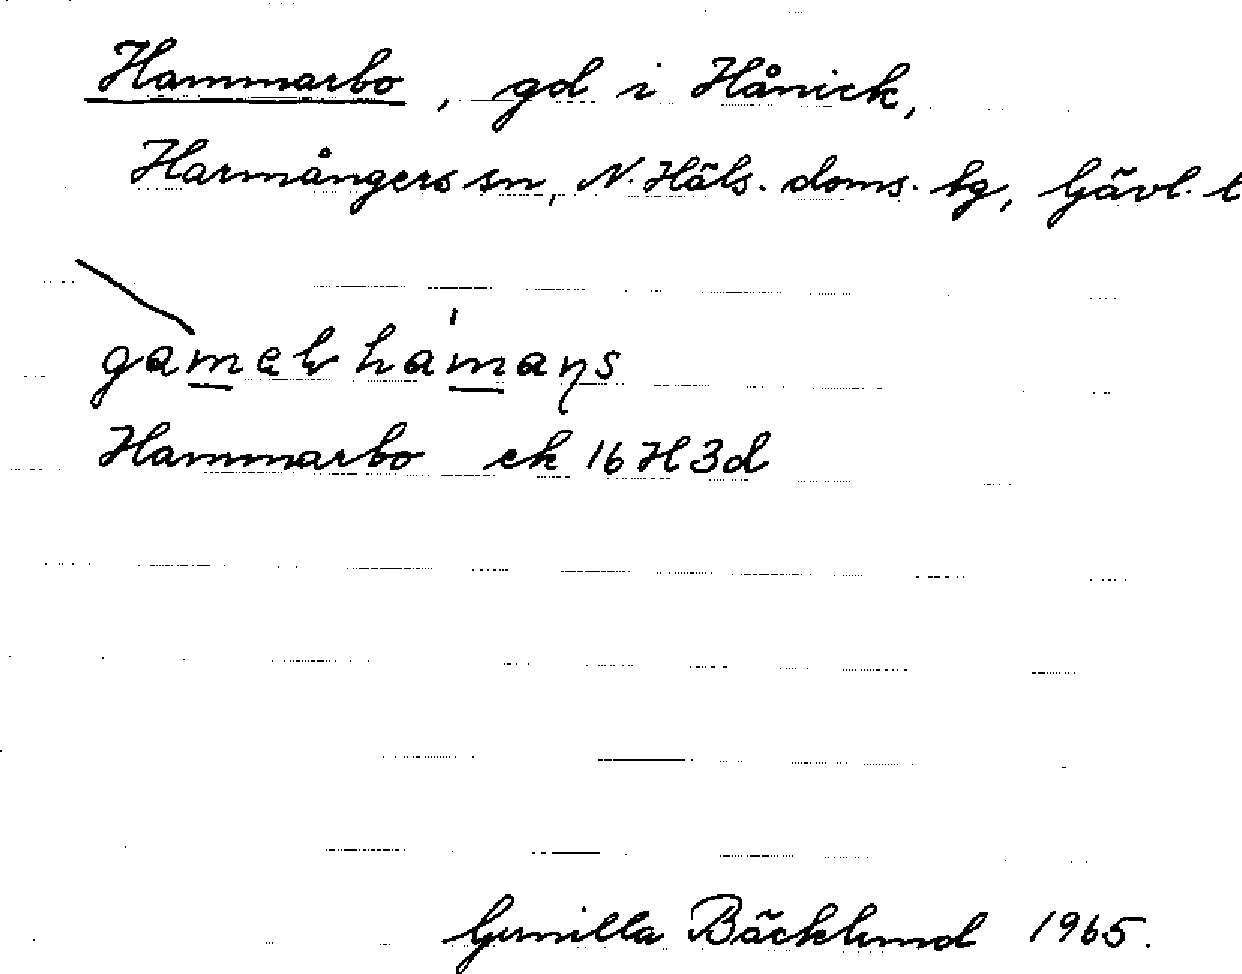 Hammarbo, gd i Hånick,
Harmångers sn, N. Häls. doms. hg, Gävl. l
gamelhamaŋs
Hammarbo ek 16H3d
Gunilla Bäcklund 1965.